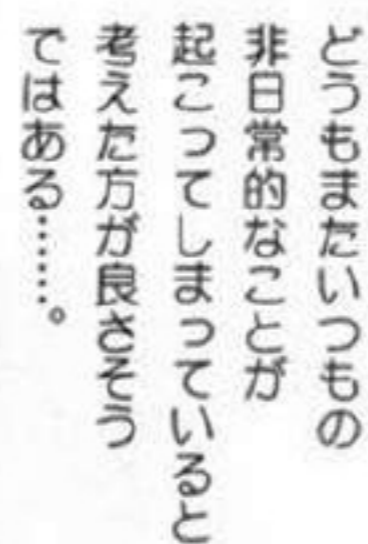 どうもまたいつもの
非日常的なことが
起こってしまっていると
考えた方が良さそう
ではある……。